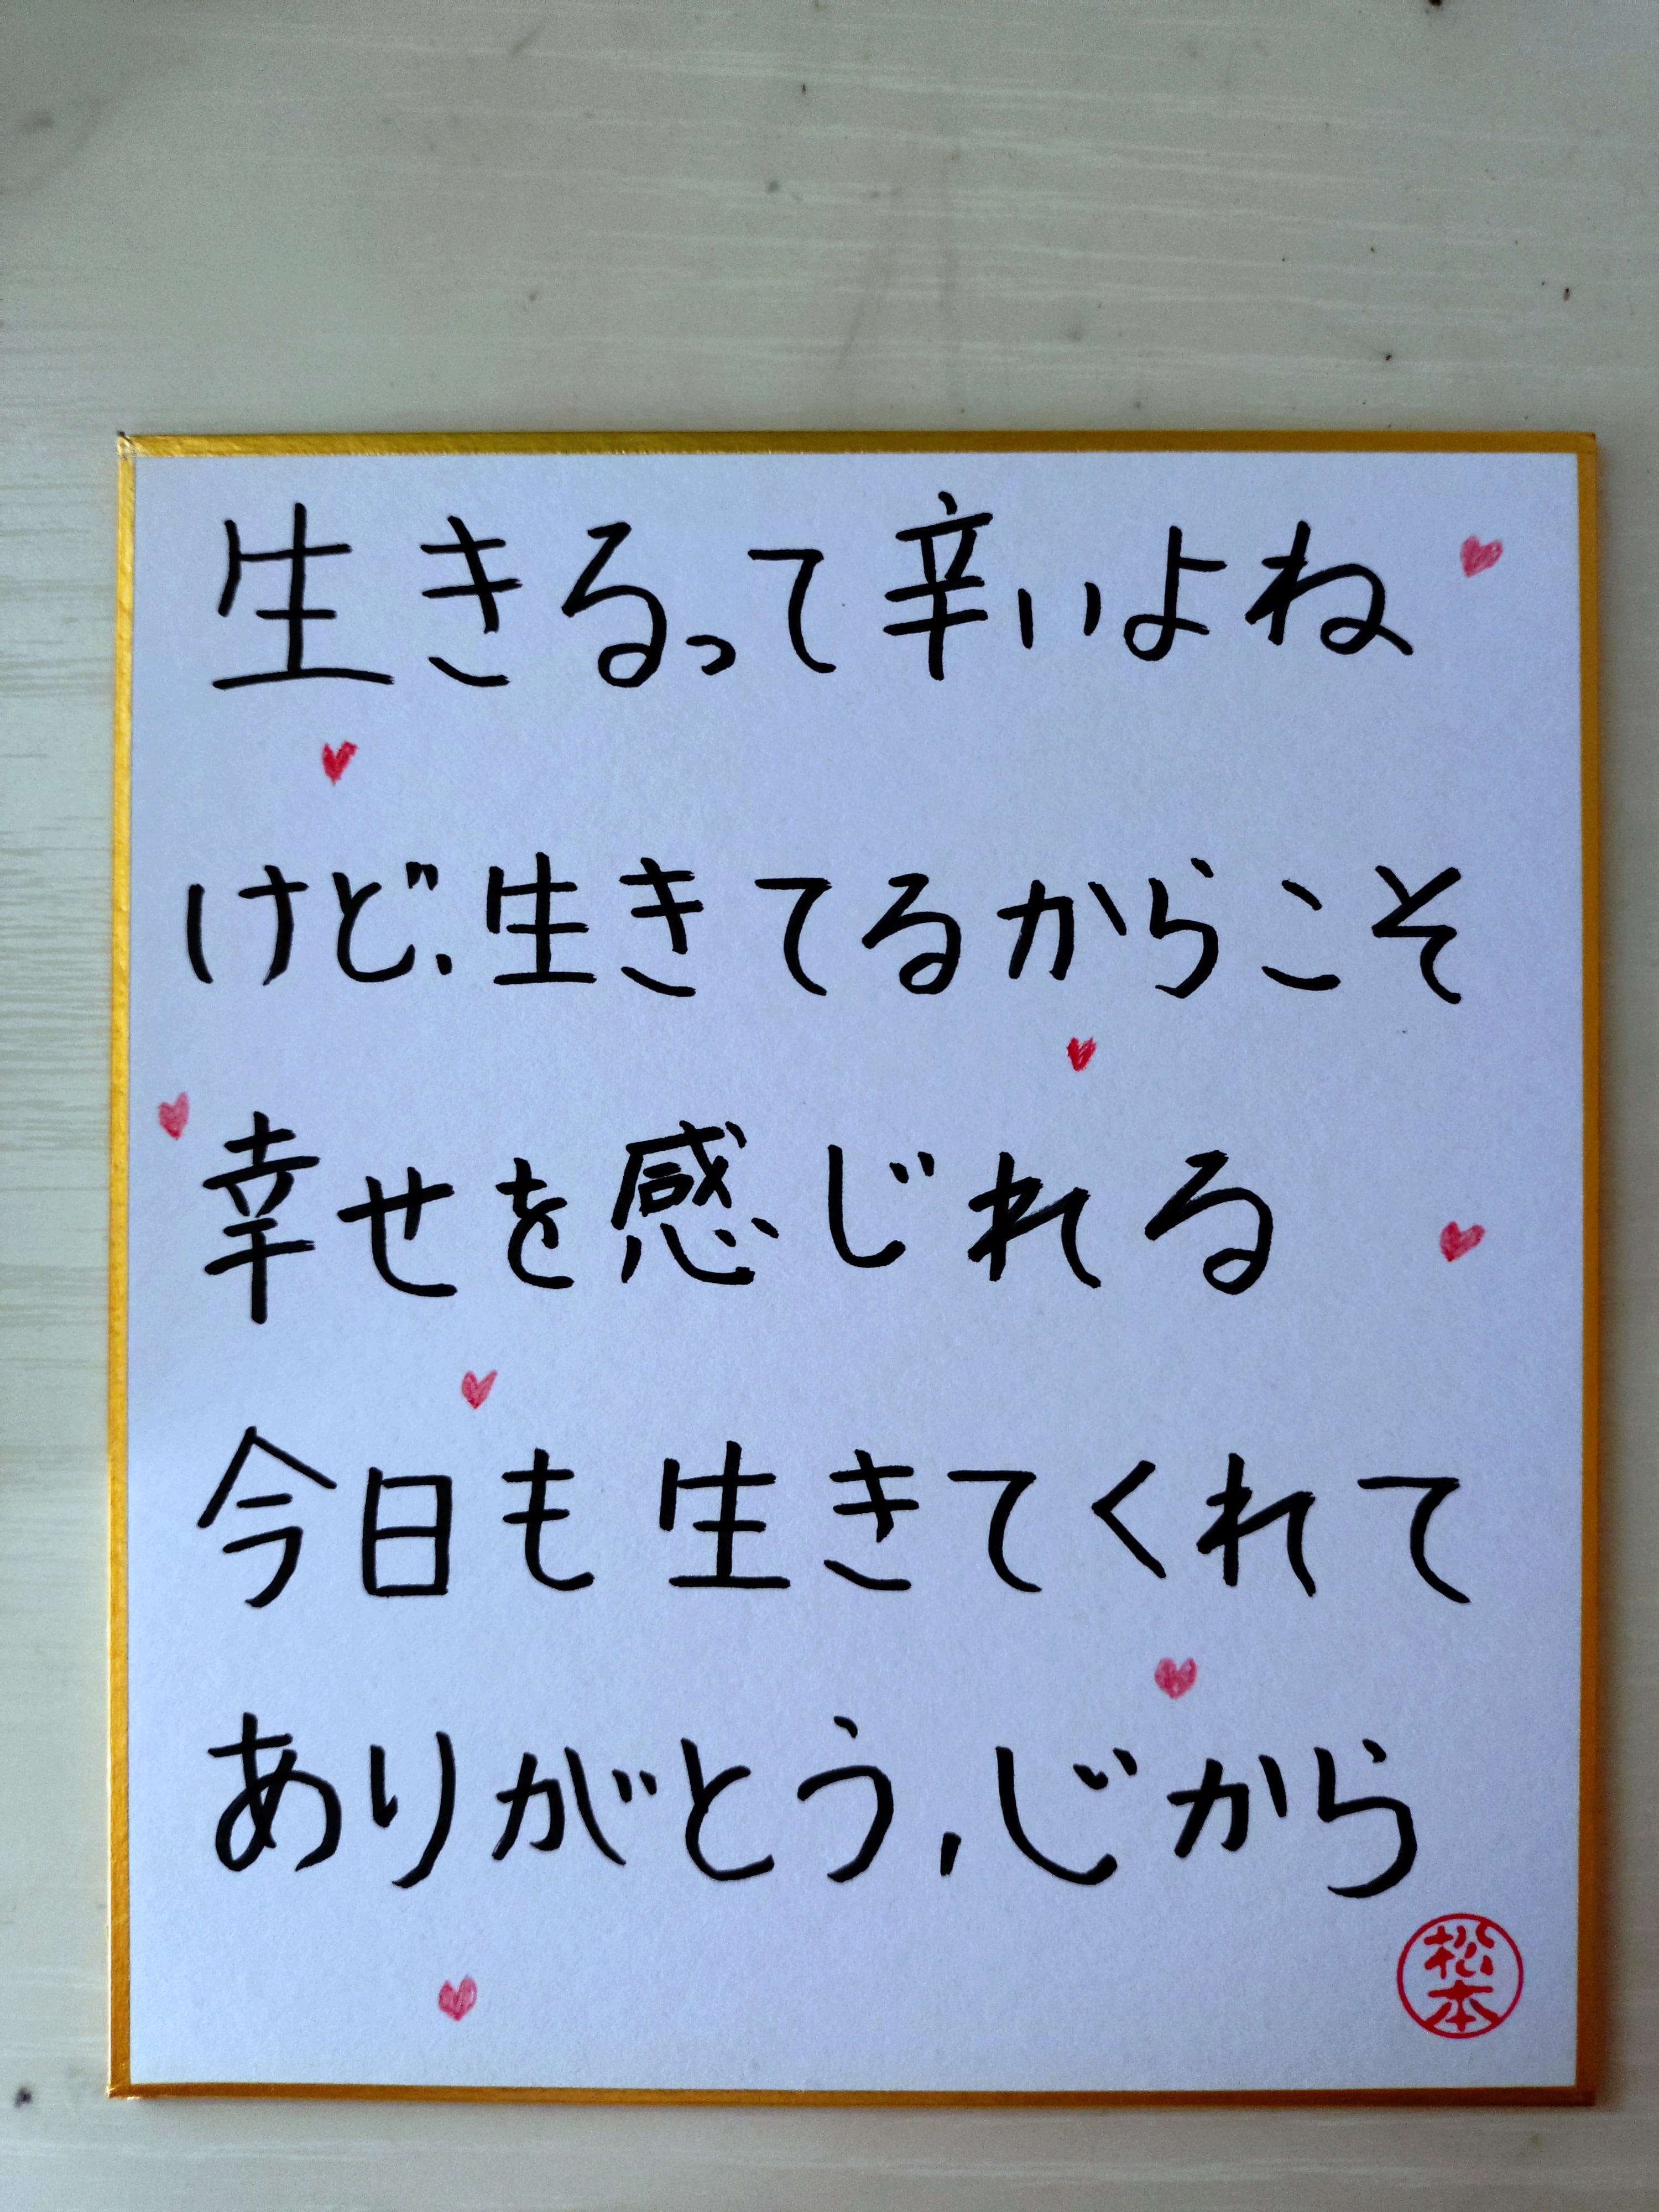 生きるって辛いよね
けど、生きてるからこそ
幸せを感じれる
今日も生きてくれて
ありがとう、じから
松本